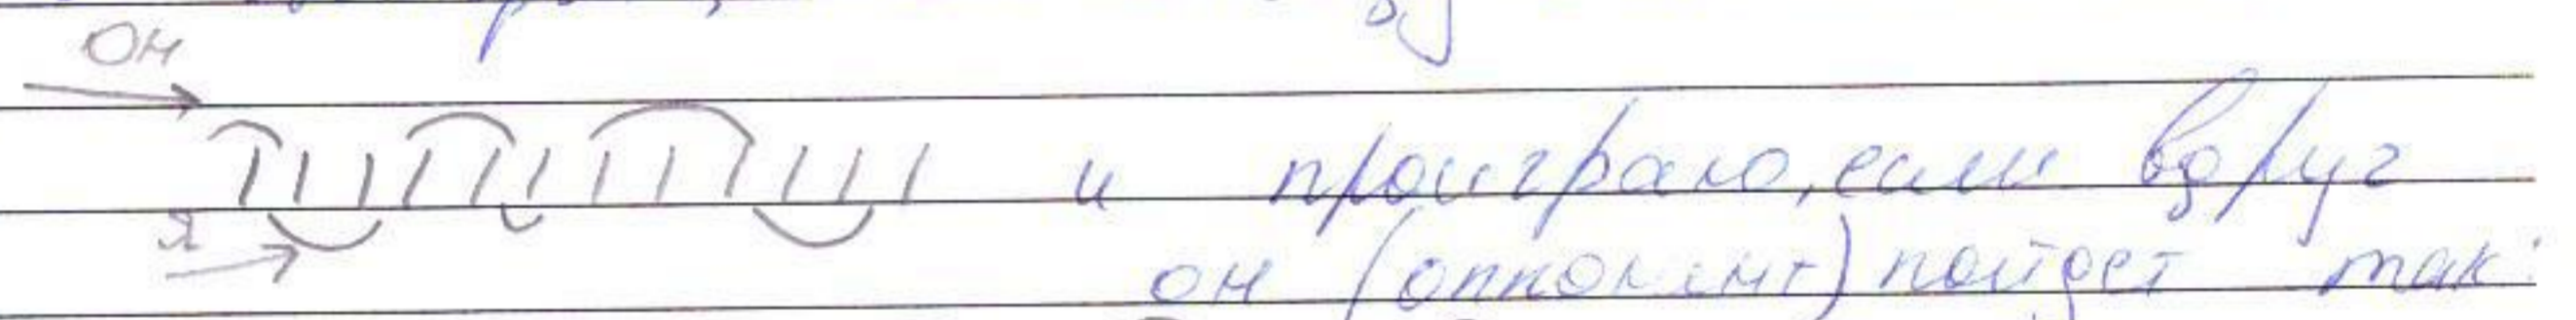 Он
и проиграю, если вдруг
Я
он (оппонент) пойдет так: